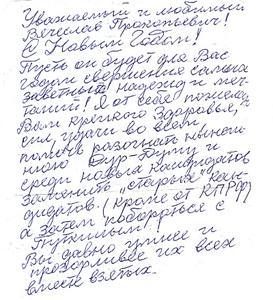 Уважаемый и любимый
Вячеслав Прокопьевич!
С Новым Годом!
Пусть он будет для Вас
годом свершения самых
заветных надежд и меч-
таний! Я от себя пожелаю
Вам крепкого здоровья,
сил, удачи во всём,
помочь разогнать нынеш-
нюю Дур-Думу и
среди новых кандидатов
заменить "старых" кан-
дидатов (кроме от КПРФ)
а затем побороться с
Путиным!
Вы давно умнее и
прозорливее их всех
вместе взятых.